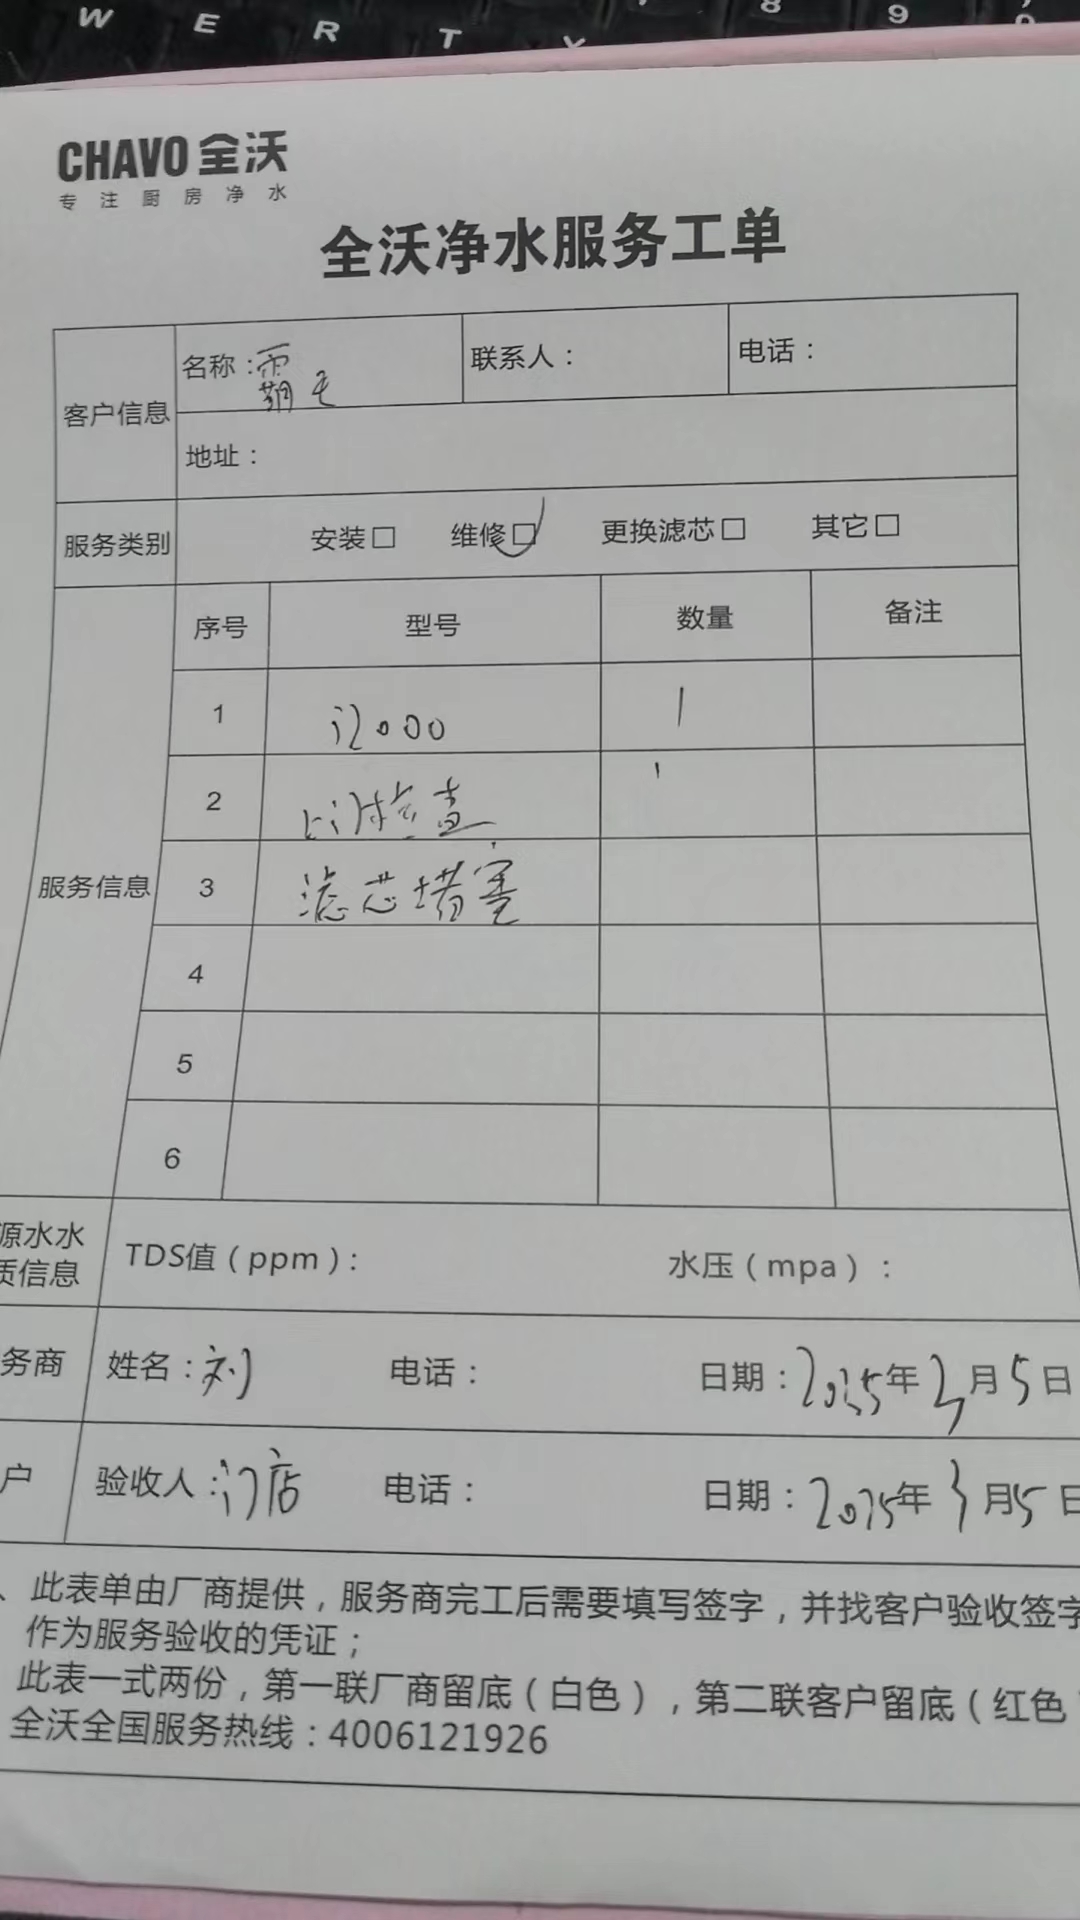 W E R T Y 8 9
CHAVO 全沃
专注厨房净水
全沃净水服务工单
客户信息 名称：霸王 联系人： 电话：
地址：
服务类别 安装□ 维修□ 更换滤芯□ 其它□
服务信息 序号 型号 数量 备注
1 i2000 1
2 上门检查
3 滤芯堵塞
4
5
6
源水水
质信息 TDS值（ppm）： 水压（mpa）：
务商 姓名：刘 电话： 日期：2025年3月5日
户 验收人：门店 电话： 日期：2025年3月5日
、此表单由厂商提供，服务商完工后需要填写签字，并找客户验收签字
作为服务验收的凭证；
此表一式两份，第一联厂商留底（白色），第二联客户留底（红色
全沃全国服务热线：4006121926